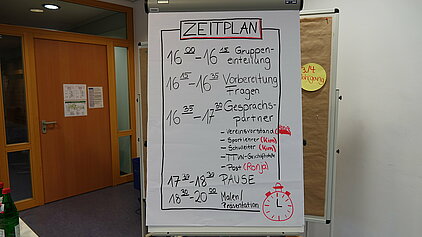 ZEITPLAN
16 00 - 16 15 Gruppen-
einteilung
16 15 - 16 35 Vorbereitung
Fragen
16 35 - 17 30 Gesprächs-
partner
- Vereinsvorstand
- Sportlehrer (Kim)
- Schwester (Kim)
- TTVN-Geschäftsstelle
- Post (Ronja)
17 30 - 18 30 PAUSE
18 30 - 20 00 Malen/
Präsentation